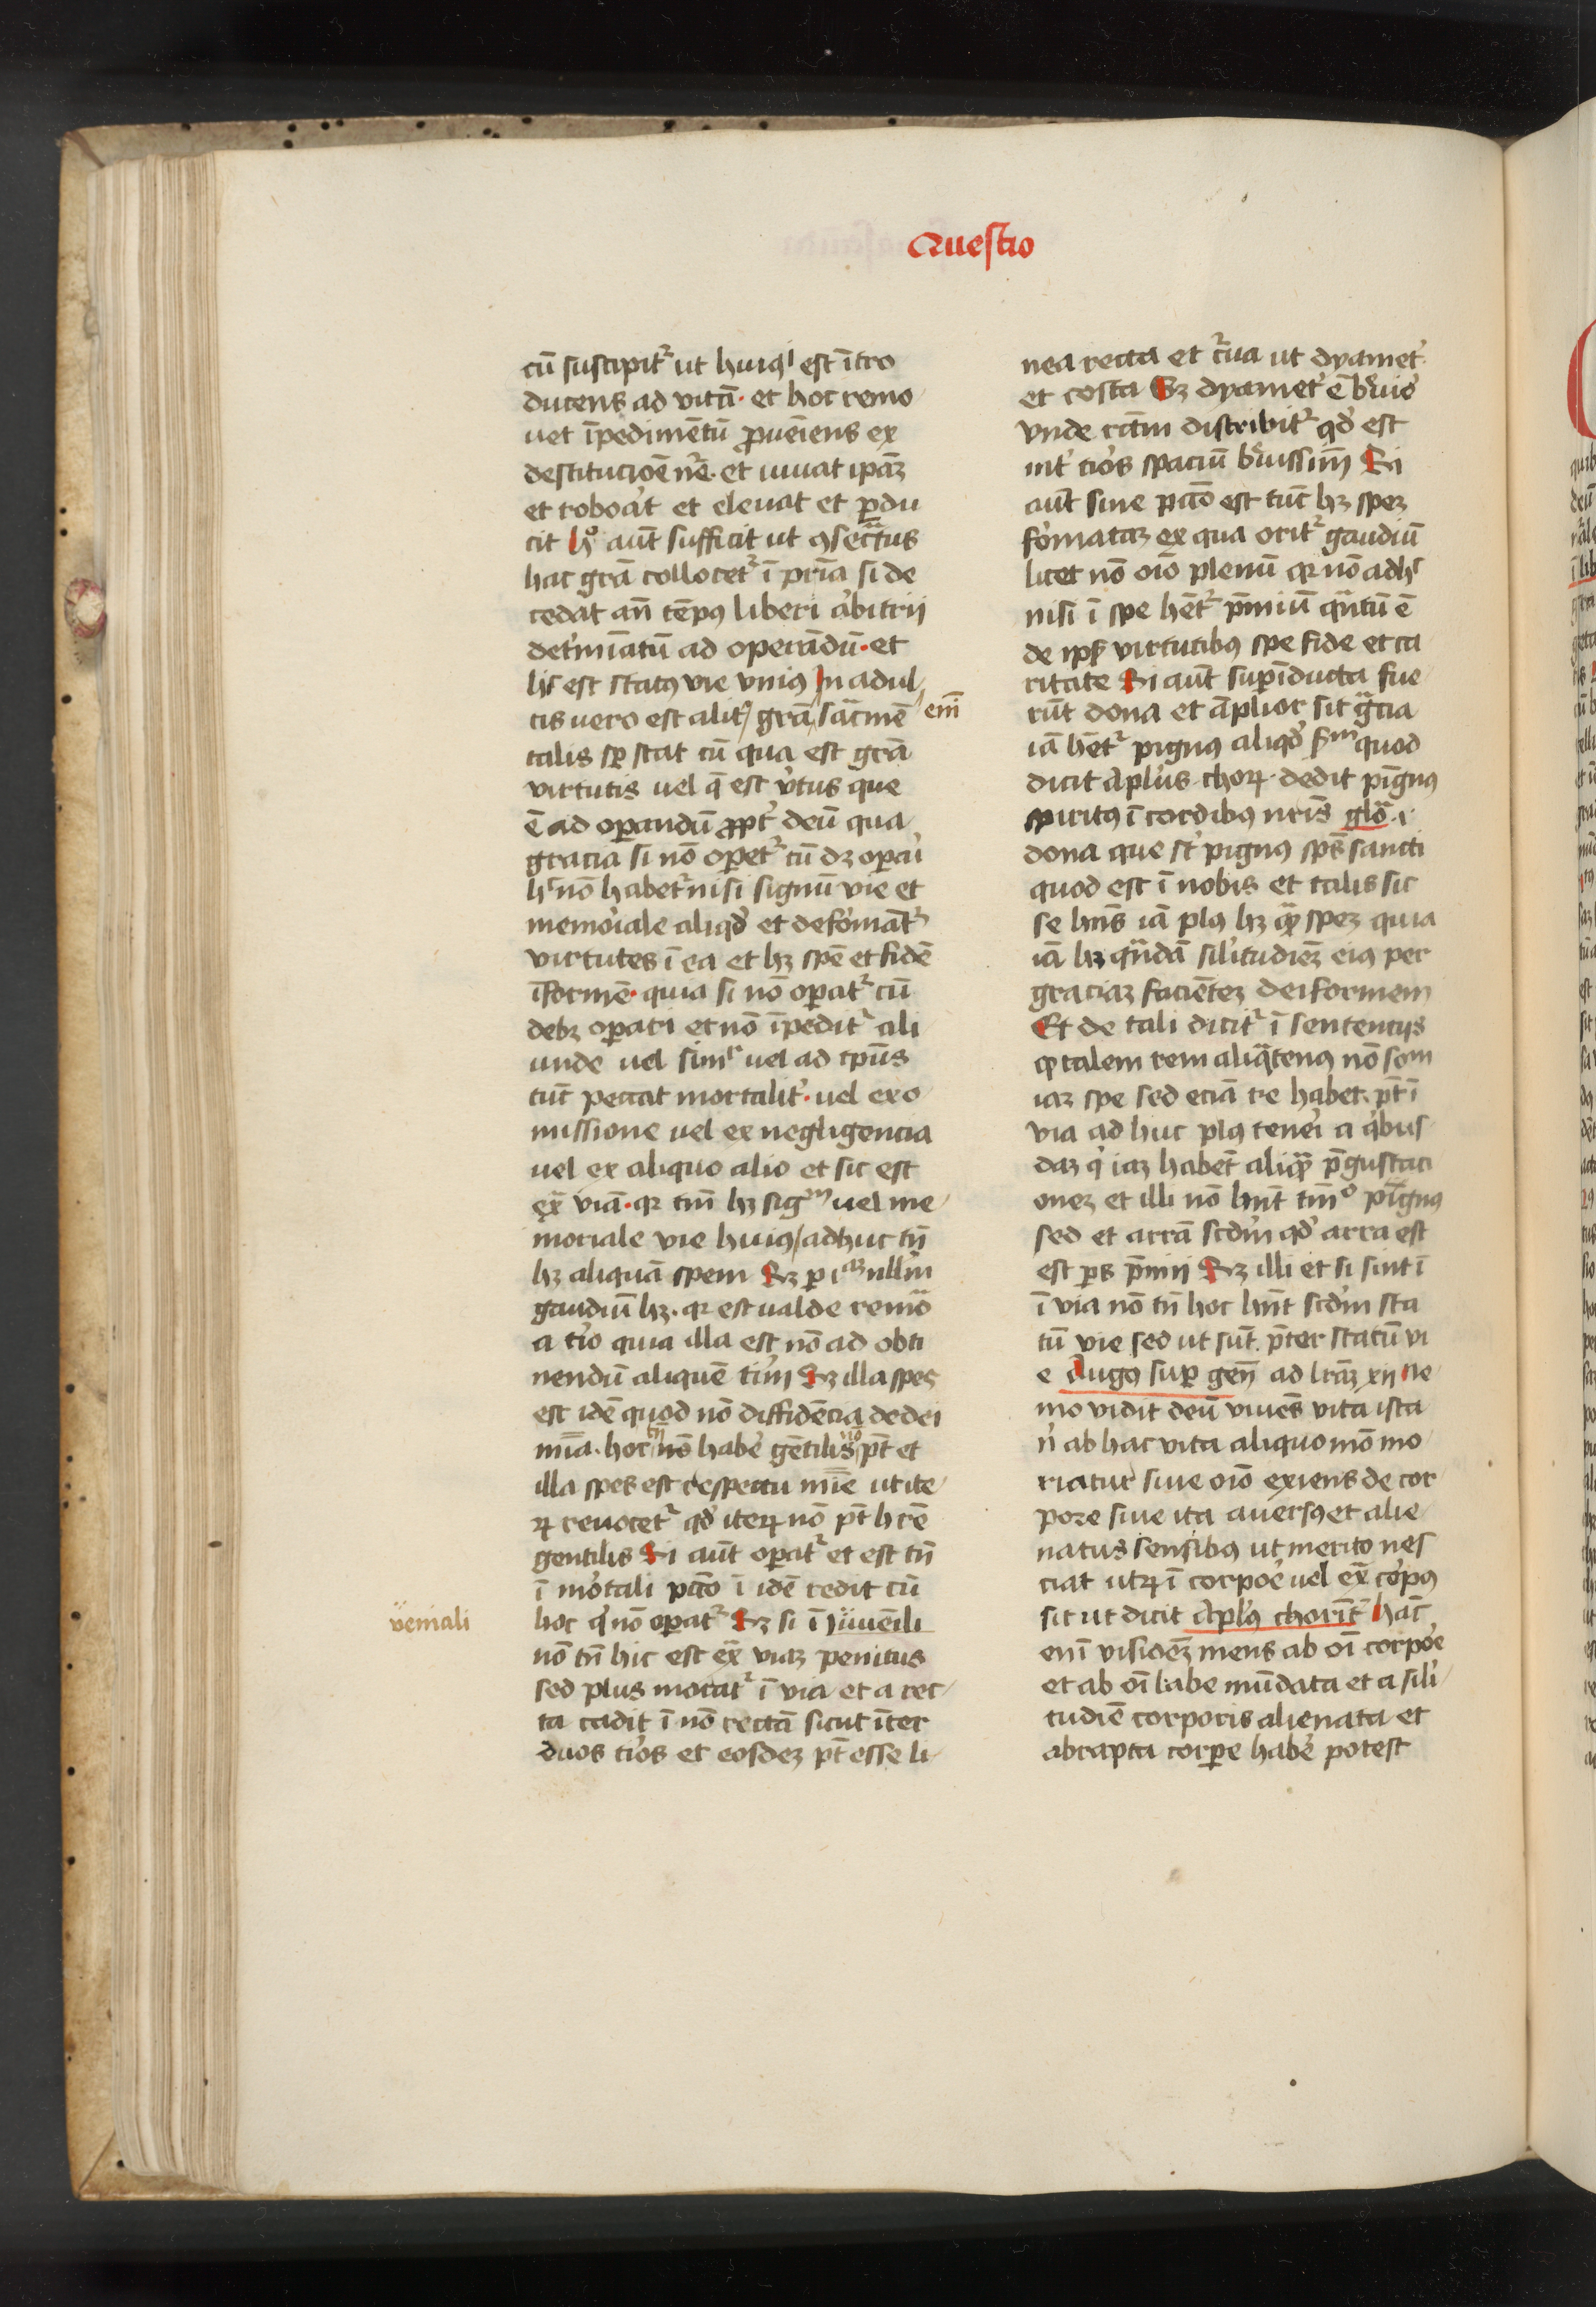 Questio
cū suscipitʳ ut huiꝰ est ītro
ducens ad vitā. et hoc remo
uet īpedimētū ꝓueīens ex
destitucioē nrē. et iuuat ipāʒ
et roborat et eleuat et ꝑdu
cit aūt sufficit ut ꝯsecratus
hac grā collocetʳ ī pria si de
cedat an̄ tēpꝰ liberi arbitrii
deťmīatū ad operādū. et
est statꝰ vie vniꝰ In adul
tis uero est aliť grā sacmē
emī
talis sꝑ stat cū qua est grā
virtutis uel q̄ est virtus que
ē ad oꝑandū ꝓpť deū qua
gracia si nō oꝑetʳ cū dʒ oꝑari
nō habetʳ nisi signū vie et
memoriale aliqď et deformātʳ
virtutes ī ea et hʒ spē et fidē
īformē. quia si nō oꝑatʳ cū
debʒ oꝑari et nō īpeditʳ ali
unde uel simˡʳ uel ad tp̄us
tūc peccat mortaliť. uel ex o
missione uel ex negligencia
uel ex aliquo alio et sic est
ex̄ viā. qꝛ tm̄ hʒ sigᵐ uel me
moriale vie huiꝰ adhuc tn̄
hʒ aliquā spem Sʒ nullū
gaudiū hʒ. qꝛ est ualde remō
a quia illa est nō ad obti
nendū aliquē Sʒ illa spes
est idē quod nō diffidēcia de dei
mīa. hoc tn̄ nō habē gētilis pt̄ et
illa spes est respectu mīe ut ite
ꝝ reuocetʳ qď iteꝝ nō pt̄ hrē
gentilis Si aūt oꝑatʳ et est tn̄
ī mortali pctō ī idē redit cū
veniali
hoc nō oꝑatʳ Sʒ si ī iuuēili
nō tn̄ hic est ex̄ viaʒ penitus
sed plus moratʳ ī via et a rec
ta cadit ī nō rectā sicut īter
duos et eosdeʒ pt̄ esse li
nea recta et ut dyameť
et costa Sʒ dyameť ē breuiꝰ
vnde discribitʳ qď est
inť spaciū breuissim̄ Si
aūt sine pctō est tūc hʒ speʒ
formataʒ ex qua oritʳ gaudiū
licet nō oīo plenū qꝛ nō adhᶜ
nisi ī spe hētʳ p̄miū q̄ntū ē
de ip̄s virtutibꝰ spe fide et ca
ritate Si aūt suꝑīducta fue
rūt dona et āplior sit gracia
iā hētʳ pignꝰ aliqď quod
dicit aplūs choꝝ. dedit pīgnꝰ
spiritꝰ ī cordibꝰ nrīs glō. i
dona que st̄ pignꝰ spūs sancti
quod est ī nobis et talis sic
se hn̄s iā plꝰ hʒ speʒ quia
iā hʒ qn̄dā silitudiēʒ eiꝰ per
graciaʒ faciēteʒ deiformem
Et de tali dicitʳ ī sentencijs
ꝙ talem rem aliq̄tenꝰ nō som
iaʒ spe sed eciā re habet. pt̄ ī
via ad huc plꝰ teneri a q̇bus
daʒ q̇ iaʒ habēt aliquā p̄gustaci
oneʒ et illi nō hn̄t pīgnꝰ
sed et arrā scdm̄ qď arra est
est ꝑs p̄mii Sʒ illi et si sint ī
ī via nō tn̄ hoc hn̄t scdm̄ sta
tū vie sed ut sūt. p̄ter statū vi
e Augꝰ suꝑ gen̄ ad lrāʒ xij Ne
mo vidit deū viuēs vita ista
nˡ ab hac vita aliquo mō mo
riatur siue oīo exiens de cor
pore siue ita auersꝰ et alie
natus sensibꝰ ut merito nes
ciat utꝝ ī corpore uel ex̄ corpꝰ
sit ut dicit aplūs chorīt̄ hāc
eni visiōeʒ mens ab oī corpore
et ab oī labe mūdata et a sili
tudiē corporis alienata et
abrapta corꝑe habē potest